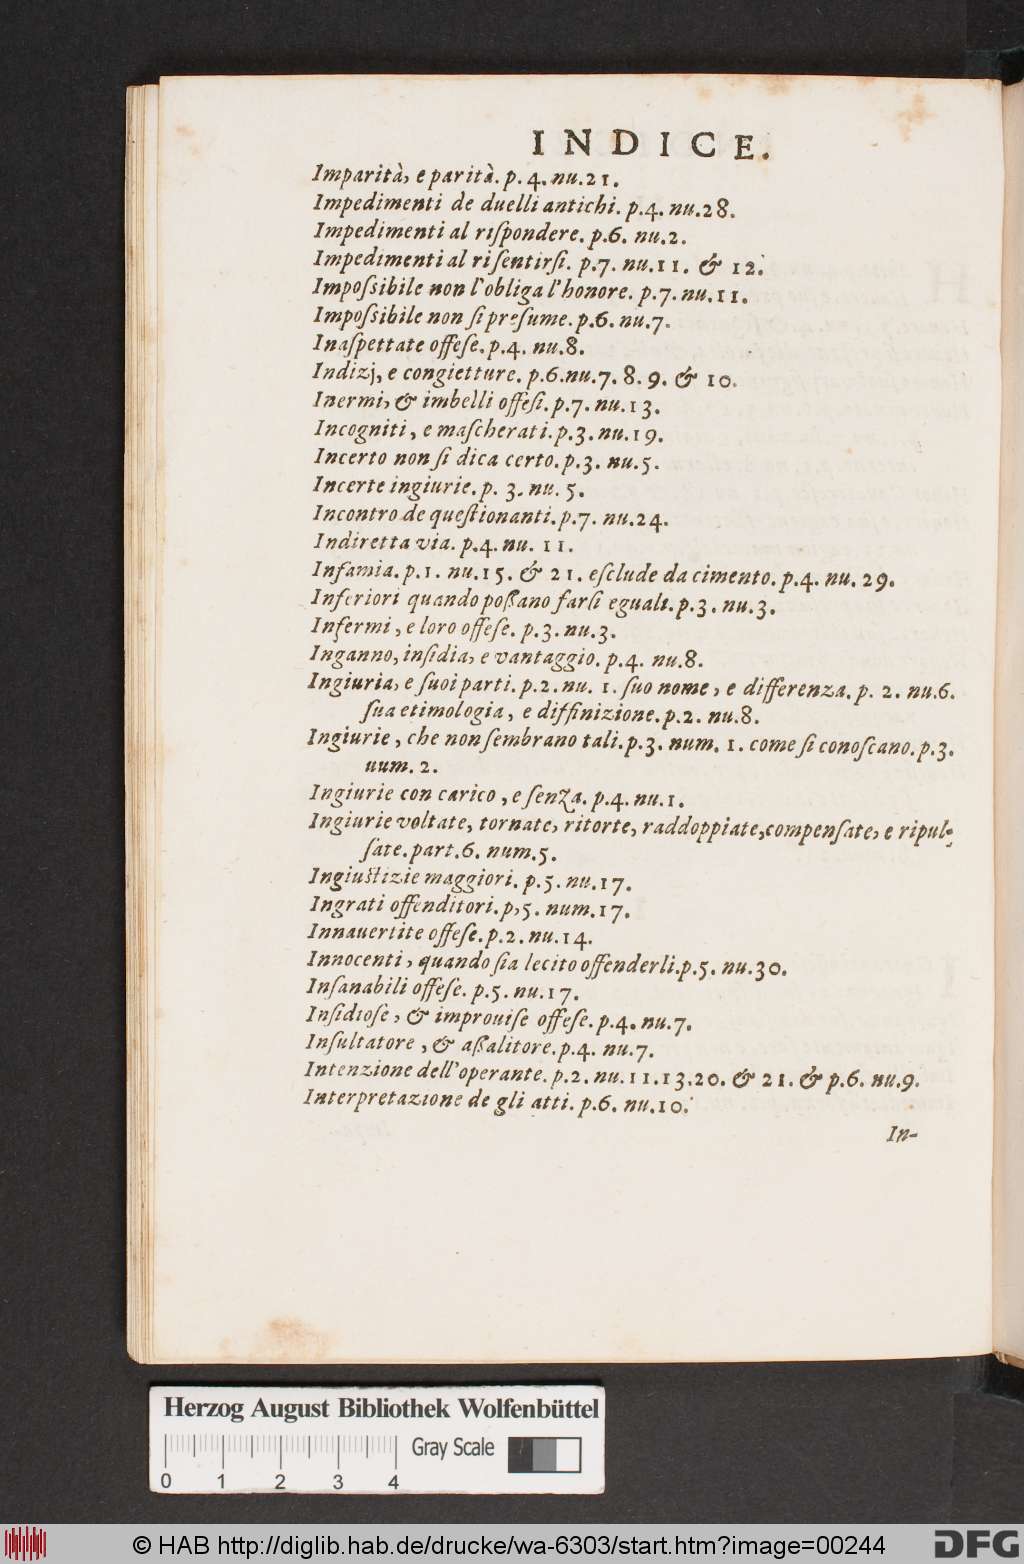 INDICE.
Imparità, e parità. p. 4. nu.21.
Impedimenti de duelli antichi. p.4. nu.28.
Impedimenti al riſpondere. p.6. nu.2.
Impedimenti al riſentirſi. p.7. nu.11. & 12.
Impoſsibile non l'obliga l'honore. p.7. nu.11.
Impoſsibile non ſi preſume. p.6. nu.7.
Inaſpettate offeſe. p.4. nu.8.
Indizj, e congietture. p.6.nu.7. 8. 9. & 10.
Inermi, & imbelli offeſi. p.7. nu.13.
Incogniti, e maſcherati. p.3. nu.19.
Incerto non ſi dica certo. p.3. nu.5.
Incerte ingiurie. p. 3. nu. 5.
Incontro de queſtionanti. p.7. nu.24.
Indiretta via. p.4. nu. 11.
Infamia. p.1. nu.15. & 21. eſclude da cimento. p.4. nu. 29.
Inferiori quando poßano farſi eguali. p.3. nu.3.
Infermi, e loro offeſe. p.3. nu.3.
Inganno, inſidia, e vantaggio. p.4. nu.8.
Ingiuria, e ſuoi parti. p.2. nu. 1. ſuo nome, e differenza. p. 2. nu.6.
ſua etimologia, e diffinizione. p.2. nu.8.
Ingiurie, che non ſembrano tali. p.3. num. 1. come ſi conoſcano. p.3.
uum. 2.
Ingiurie con carico, e ſenza. p.4. nu.1.
Ingiurie voltate, tornate, ritorte, raddoppiate, compenſate, e ripul-
ſate. part.6. num.5.
Ingiuſtizie maggiori. p.5. nu.17.
Ingrati offenditori. p,5. num.17.
Innauertite offeſe. p.2. nu.14.
Innocenti, quando ſia lecito offenderli. p.5. nu.30.
Inſanabili offeſe. p.5. nu.17.
Inſidioſe, & improuiſe offeſe. p.4. nu.7.
Inſultatore, & aßalitore. p.4. nu.7.
Intenzione dell'operante. p.2. nu.11.13.20. & 21. & p.6. nu.9.
Interpretazione de gli atti. p.6. nu.10.
In-
Herzog August Bibliothek Wolfenbüttel
Gray Scale
0 1 2 3 4
© HAB http://diglib.hab.de/drucke/wa-6303/start.htm?image=00244
DFG